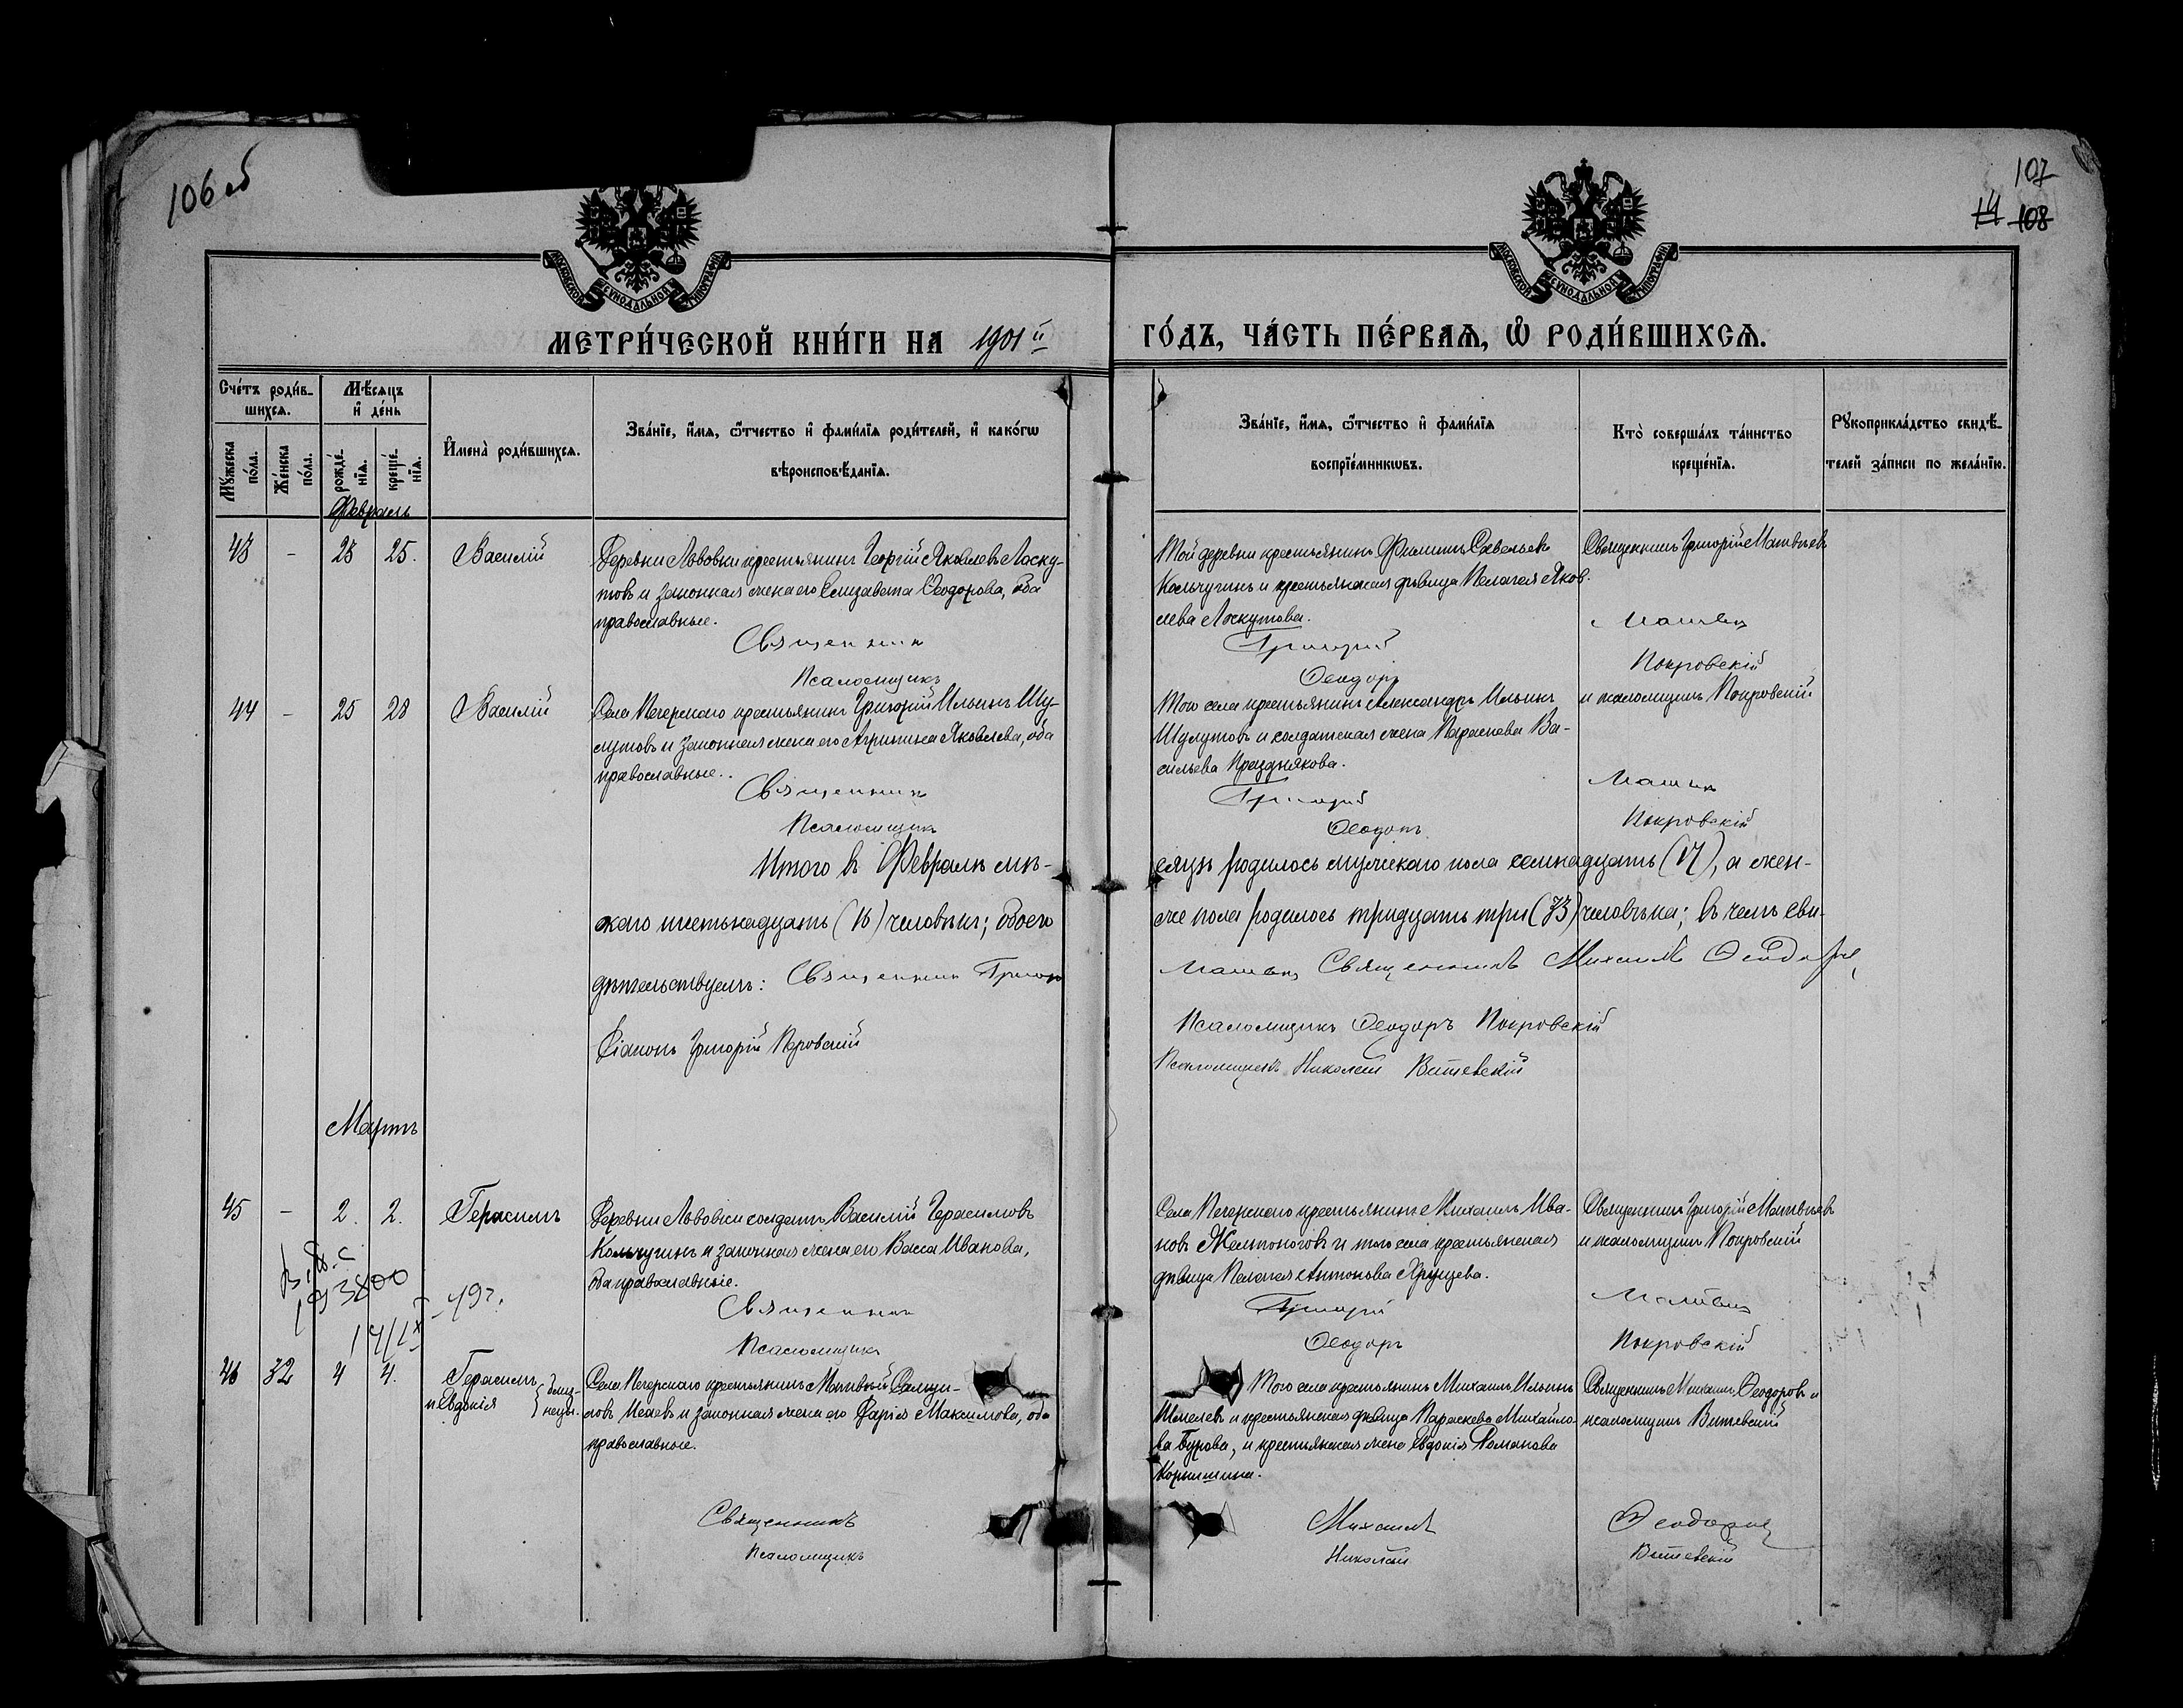 106 об
107
14 108
МОСКОВСКОЙ СУНОДАЛЬНОЙ ТИПОГРАФІИ
МОСКОВСКОЙ СУНОДАЛЬНОЙ ТИПОГРАФІИ
МЕТРИ́ЧЕСКОЙ КНИ́ГИ НА 1901й ГО́ДЪ, ЧА́СТЬ ПЕ́РВАѦ, Ѡ҆ РОДИ́ВШИХСѦ.
Сче́тъ роди́в-
шихсѧ.
Мꙋ́жеска по́ла.
Же́нска по́ла.
Мѣ́сѧцъ
и҆ де́нь
рожде́-
нїѧ.
креще́-
нїѧ.
И҆мена̀ роди́вшихсѧ.
Зва́нїе, и҆́мѧ, ѻ҆́тчество и҆ фами́лїѧ роди́телей, и҆ како́гѡ
вѣроисповѣ́данїѧ.
Зва́нїе, и҆́мѧ, ѻ҆́тчество и҆ фами́лїѧ
воспрїе́мникѡвъ.
Кто̀ соверша́лъ та́инство
креще́нїѧ.
Рꙋкоприкла́дство свидѣ́-
телей за́писи по жела́нїю.
Февраль
43 - 23 25. Василій
Деревни Львовки крестьянинъ Георгій Яковлевъ Лоску-
товъ и законная жена его Елизавета Ѳеодорова, оба
православные.
Священникъ
Псаломщикъ
Той деревни крестьянинъ Филиппъ Савельевъ
Кольчугинъ и крестьянская дѣвица Пелагея Яков-
лева Лоскутова.
Григорій
Ѳеодоръ
Священникъ Григорій Матвѣевъ
Матвѣевъ
Покровскій
44 - 25 28 Василій
Села Печерскаго крестьянинъ Григорій Ильинъ Шу-
лутовъ и законная жена его Агрипина Яковлева, оба
православные.
Священникъ
Псаломщикъ
Того села крестьянинъ Александръ Ильинъ
Шулутовъ и солдатская жена Параскева Ва-
сильева Праздн‌якова.
Григорій
Ѳеодоръ
и псаломщикъ Покровскій
Матвѣевъ
Покровскій
Итого въ Февралѣ мѣ-
сяцѣ родилось мужскаго пола семнадцать (17), а жен-
скаго шестьнадцать (16) человѣкъ; обоего
же пола родилось тридцать три (33) человѣка; въ чемъ сви-
дѣтельствуемъ: Священникъ Григорій
Матвѣевъ Священникъ Михаилъ Ѳеодоровъ
Діаконъ Григорій Перовскій
Псаломщикъ Ѳеодоръ Покровскій
Псаломщикъ Николай Витевскій
Мартъ
45 - 2. 2. Герасимъ
193800
-49г.
Деревни Львовки солдатъ Василій Герасимовъ
Кольчугинъ и законная жена его Васса Иванова,
оба православные.
Священникъ
Псаломщикъ
Села Печерскаго крестьянинъ Михаилъ Ива-
новъ Желтоноговъ и того села крестьянская
дѣвица Пелагея Антонова Хрущева.
Григорій
Ѳеодоръ
Священникъ Григорій Матвѣевъ
и псаломщикъ Покровскій
Матвѣевъ
Покровскій
46 32 4 4. Герасимъ
и Евдокія близ-
нецы.
Села Печерскаго крестьянинъ Матвѣй
и законная жена его Дарія Максимова, оба
православные.
Священникъ
Псаломщикъ
Того села крестьянинъ Михаилъ Ильинъ
Шмелевъ и крестьянская дѣвица Параскева Михайло-
ва Бурова, и крестьянская жена Евдокія Романова
Корнишина.
Михаилъ
Николай
Священникъ Михаилъ Ѳеодоровъ и
псаломщикъ Витевскій
Ѳеодоровъ
Витевскій